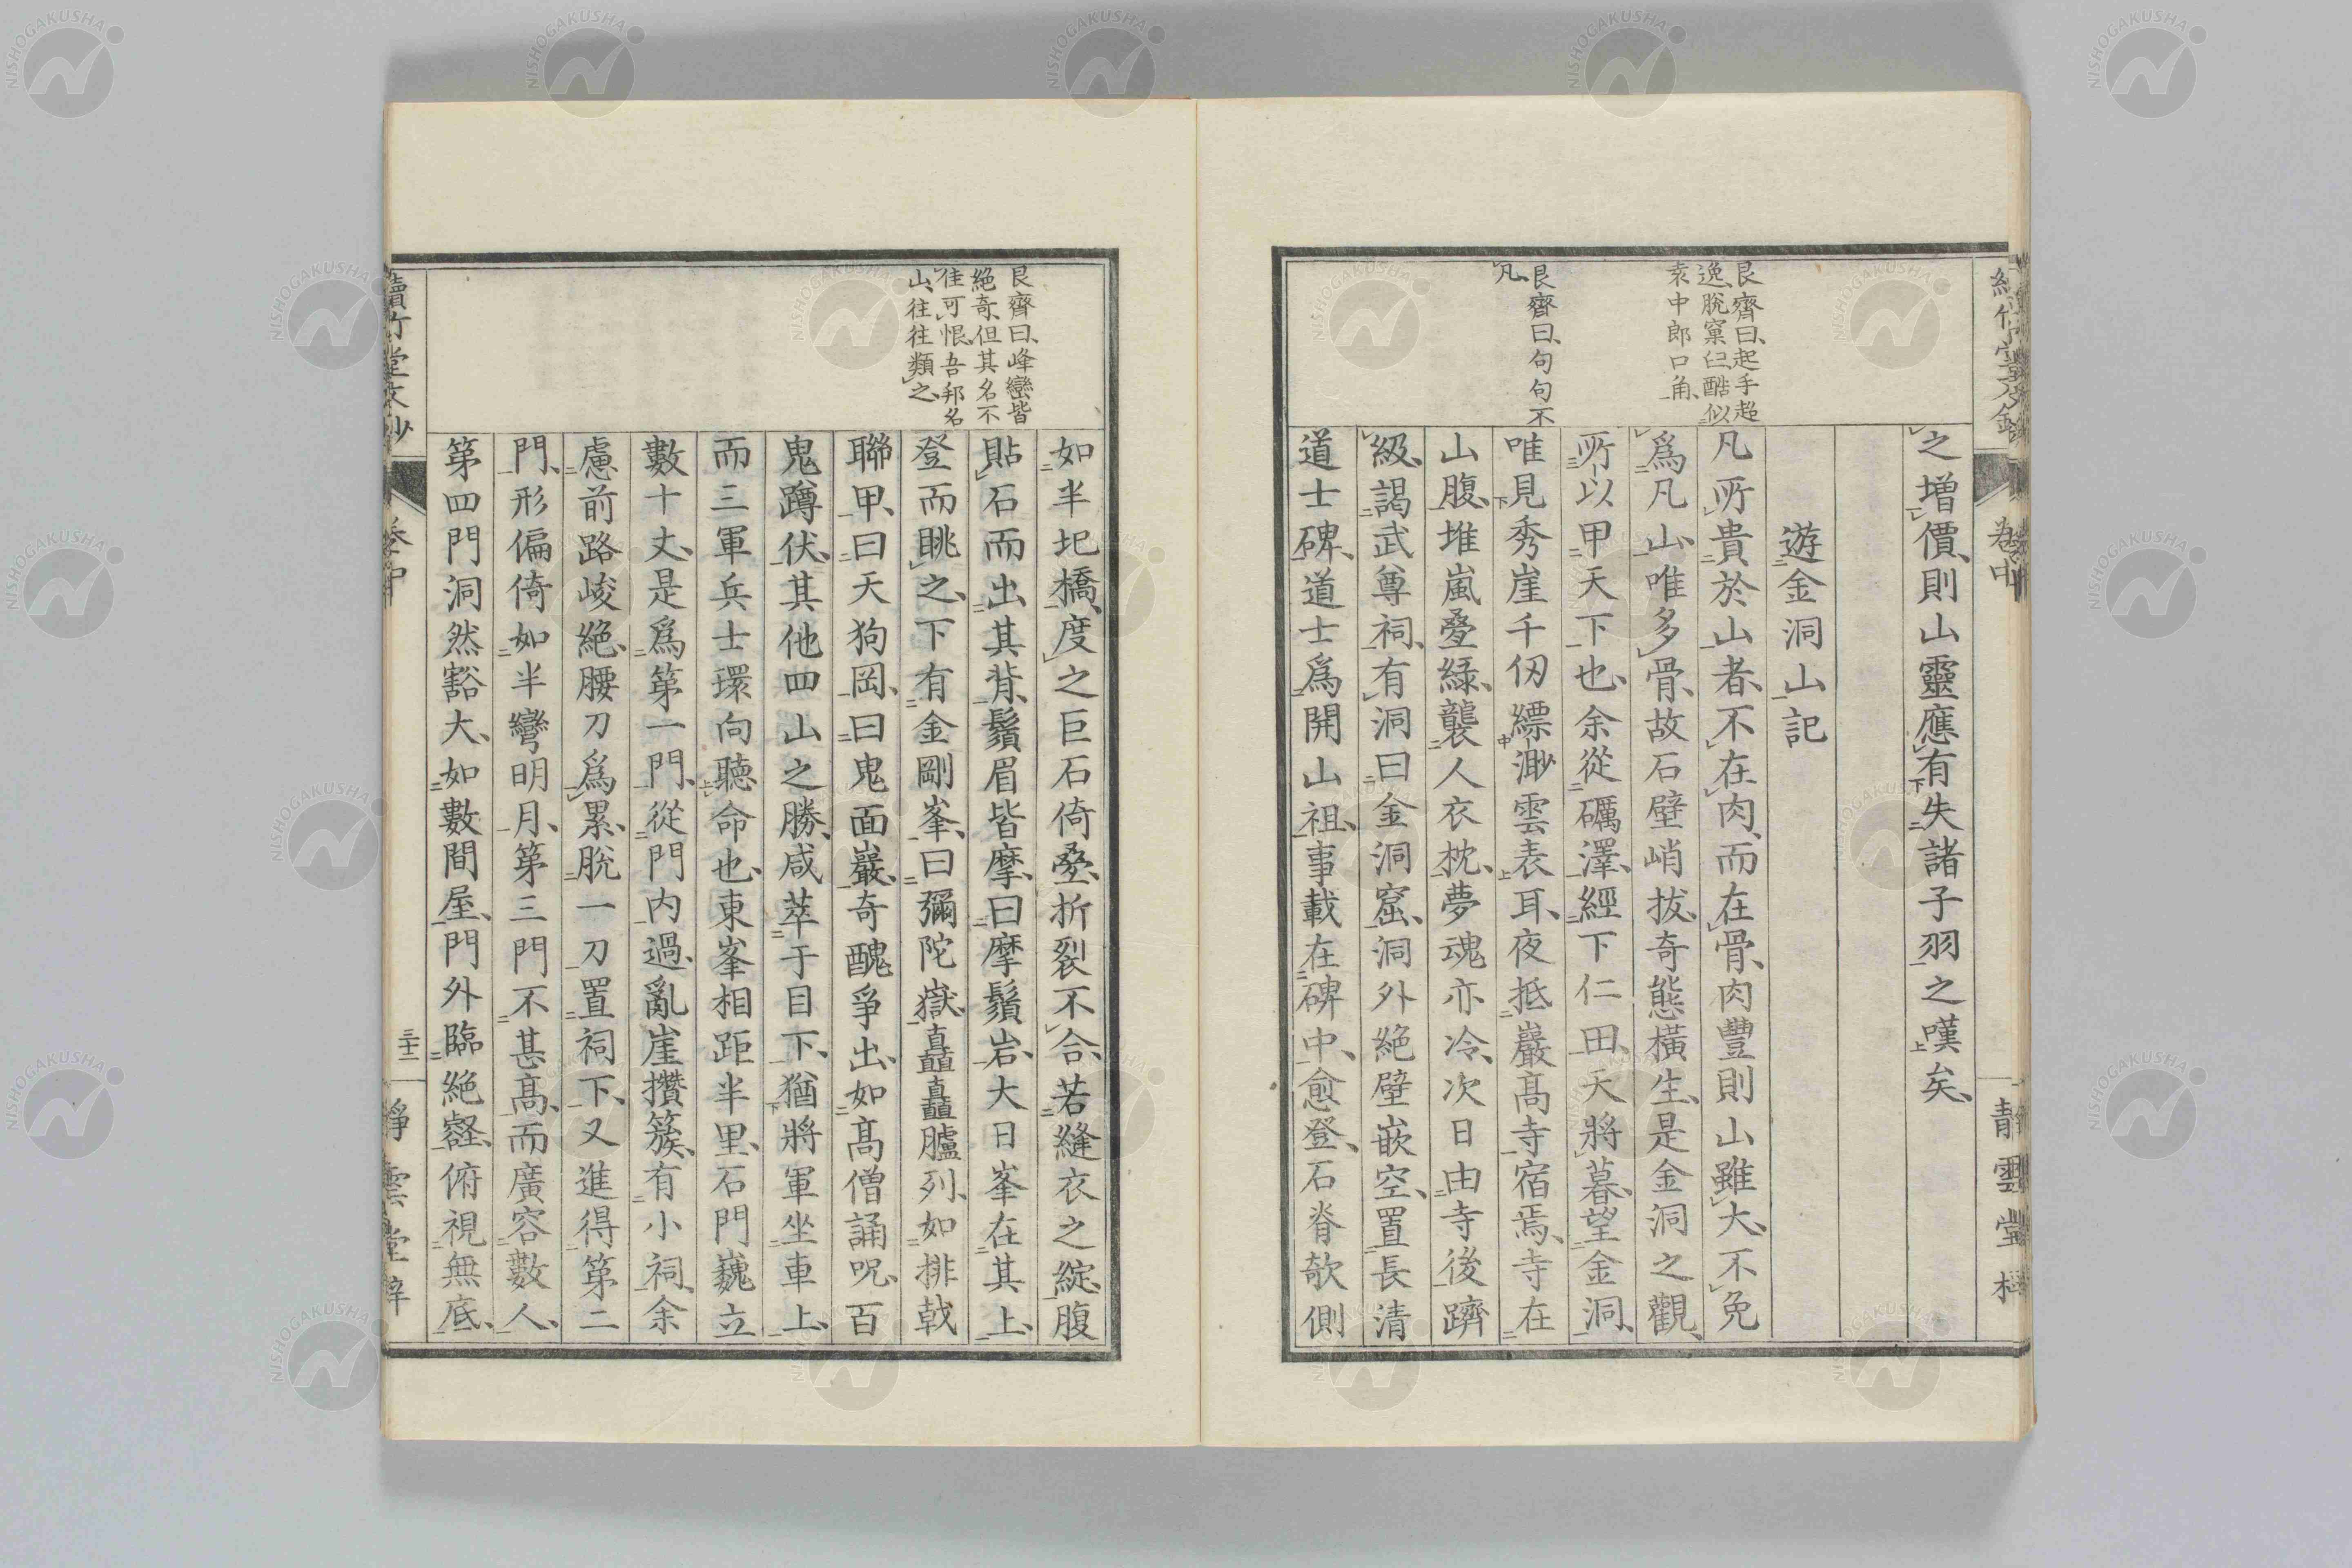 之增價、則山靈應有失諸子羽之嘆矣、
遊金洞山記
艮齋曰、起手超
逸、脫窠臼、酷似
袁中郎口角、
凡所貴於山者、不在肉、而在骨、肉豐則山雖大、不免
爲凡山、唯多骨、故石壁峭拔、奇態橫生、是金洞之觀、
所以甲天下也、余從礪澤、經下仁田、天將暮、望金洞、
艮齋曰、句句不
凡、
唯見秀崖千仞縹渺雲表耳、夜抵巖高寺宿焉、寺在
山腹、堆嵐疊綠、襲人衣枕、夢魂亦冷、次日由寺後躋
級、謁武尊祠、有洞曰金洞窟、洞外絕壁嵌空、置長清
道士碑、道士爲開山祖、事載在碑中、愈登、石脊欹側
卷中
靜雲堂梓
艮齋曰、峰巒皆
絕奇、但其名不
佳可恨、吾邦名
山、往往類之、
如半圯橋、度之巨石倚疊、折裂不合、若縫衣之綻、腹
貼石而出其背、鬚眉皆摩、曰摩鬚岩、大日峯在其上、
登而眺之、下有金剛峯、曰彌陀嶽、矗矗臚列、如排戟
聯甲、曰天狗岡、曰鬼面巖、奇醜爭出、如高僧誦呪、百
鬼蹲伏、其他四山之勝、咸萃于目下、猶將軍坐車上、
而三軍兵士環向聽命也、東峯相距半里、石門巍立
數十丈、是爲第一門、從門內過、亂崖攢簇、有小祠、余
慮前路峻絕、腰刀爲累、脫一刀置祠下、又進得第二
門、形偏倚如半彎明月、第三門不甚高、而廣容數人、
第四門洞然豁大、如數間屋、門外臨絕壑、俯視無底、
讀竹堂文鈔
卷中
三十二
靜雲堂梓